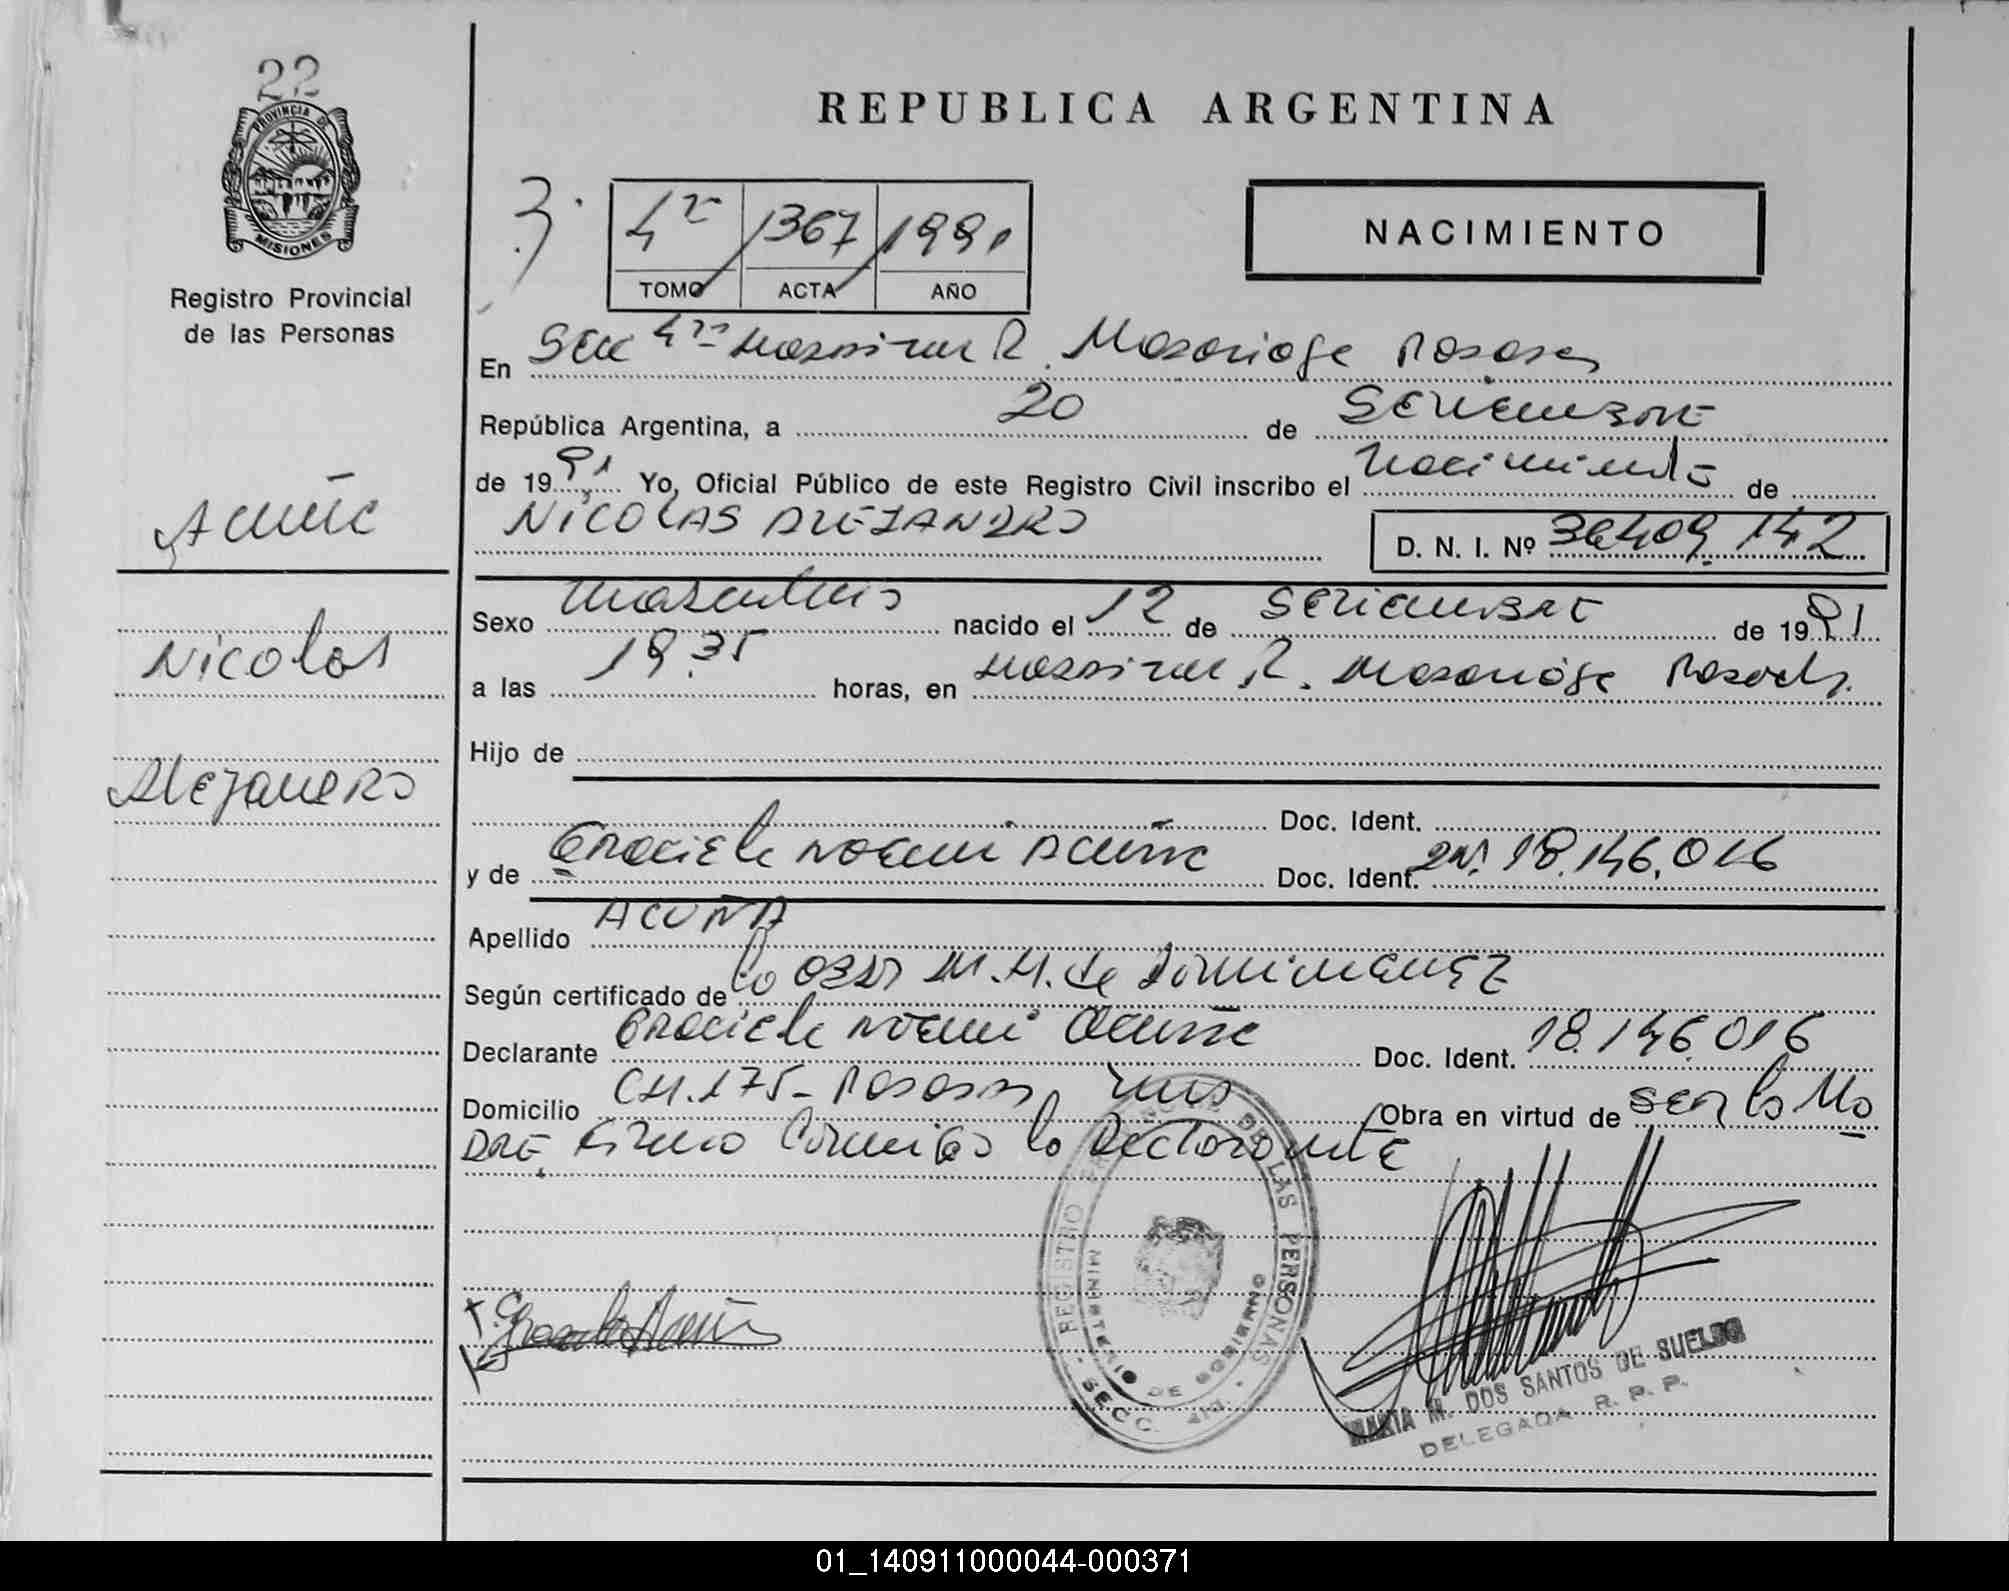 22
PROVINCIA DE
MISIONES
Registro Provincial
de las Personas
REPUBLICA ARGENTINA
4ta 1367 1991
TOMO ACTA AÑO
NACIMIENTO
En Secc 4ta R. Posadas
República Argentina, a 20 de SETIEMBRE
de 1991 Yo, Oficial Público de este Registro Civil inscribo el Nacimiento de
NICOLAS ALEJANDRO D. N. I. Nº 36.409.142
Acuña
Nicolas
Alejandro
Sexo masculino nacido el 12 de SETIEMBRE de 1991
a las 19.35 horas, en R. Posadas.
Hijo de
Doc. Ident.
y de Graciela Noemi Acuña Doc. Ident. DNI. 18.146.016
Apellido ACUÑA
Según certificado de la Obst M.H. de
Declarante Graciela Noemi Acuña Doc. Ident. 18.146.016
Domicilio CH.175- Posadas, Mnes Obra en virtud de ser la Ma
DRE, Firma Conmigo la Declarante
Graciela Acuña
REGISTRO DE LAS PERSONAS
MINISTERIO DE GOBIERNO
SECC.
MARIA M. DOS SANTOS DE SUELDO
DELEGADA R. P. P.
01_140911000044-000371